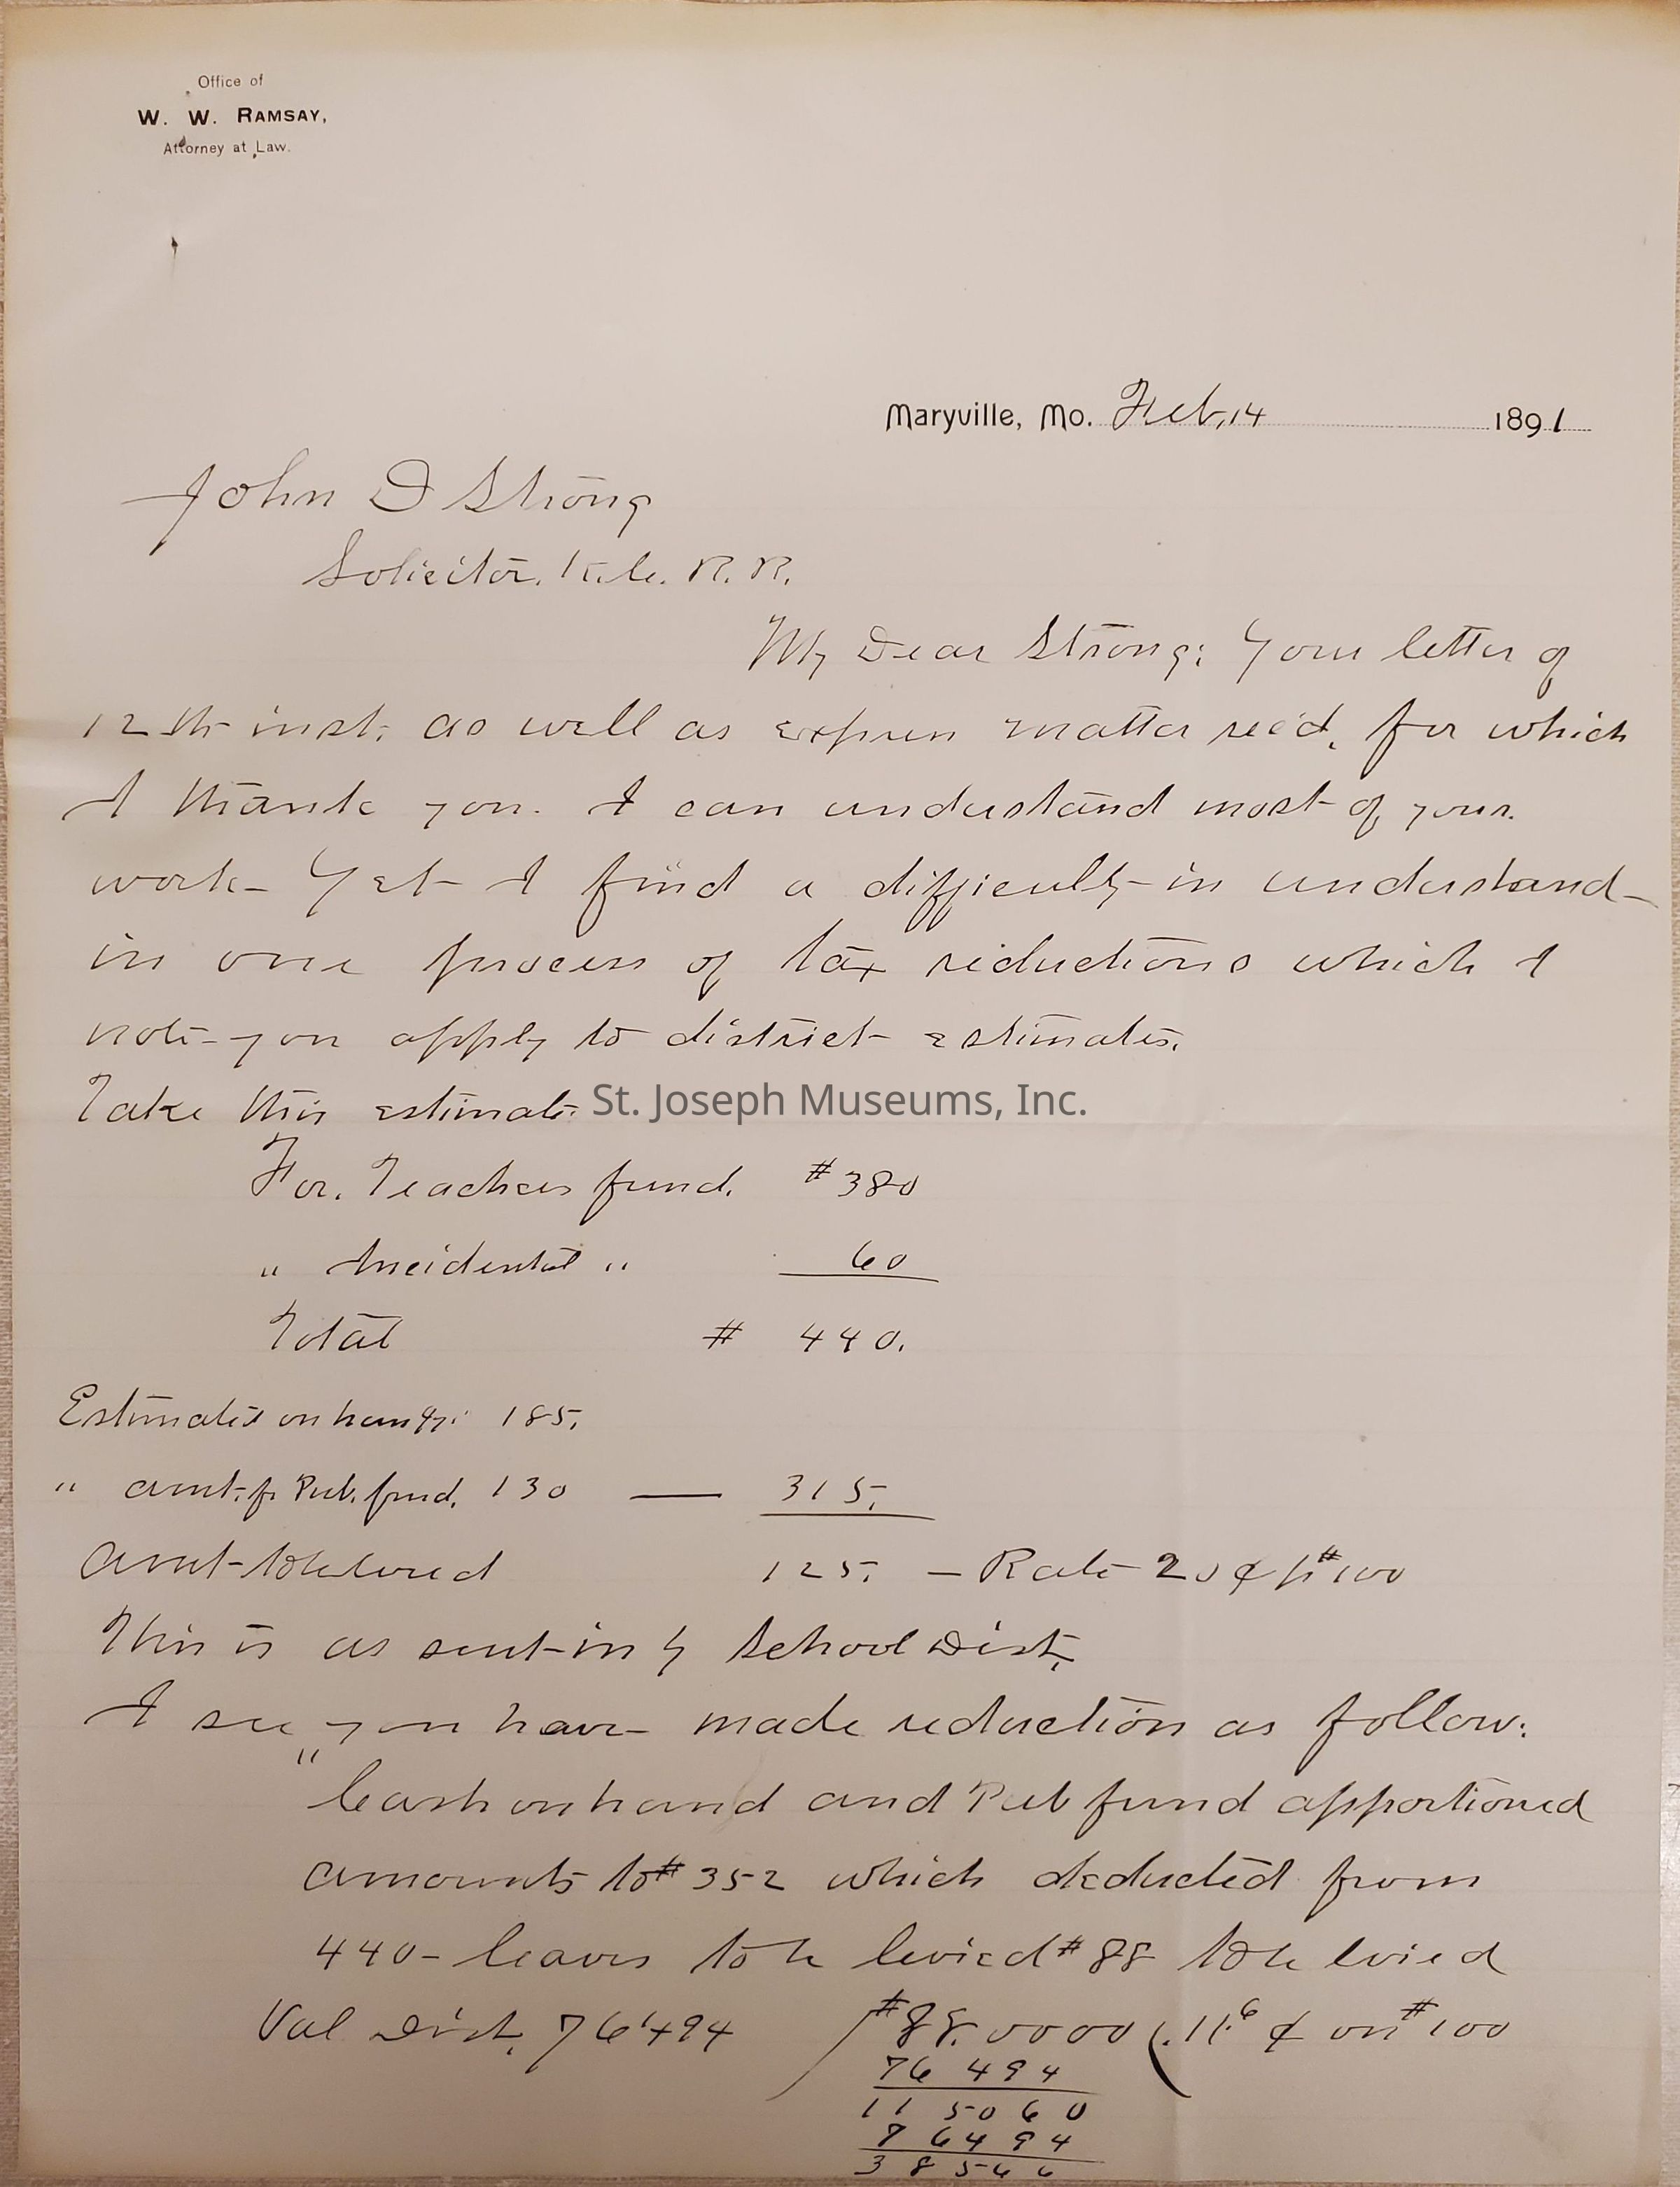 Office of
W. W. RAMSAY,
Attorney at Law.
Maryville, Mo. Feb, 14 1891
John D Strong
Solicitor. K.C. R. R.
My Dear Strong: Your letter of
12th inst. as well as express matter rec'd, for which
I thank you. I can understand most of your
work - Yet I find a difficulty in understand-
in one process of tax reductions which I
note you apply to district estimates.
Take this estimate
St. Joseph Museums, Inc.
For. Teachers fund. # 380
" Incidental " 60
Total # 440.
Estimates on hand 185.
" amt. fr Pub. fund. 130 — 315.
Amt to be levied 125. — Rate 20 ¢ pr # 100
This is as sent in by School Dist.
I see you have made reduction as follow:
"Cash on hand and Pub fund apportioned
amounts to # 352 which deducted from
440 - leaves to be levied # 88 to be levied
Val Dist. 76494 / # 88.0000 (.11.6 ¢ on # 100
76 494
11 5060
7 6494
3 8566